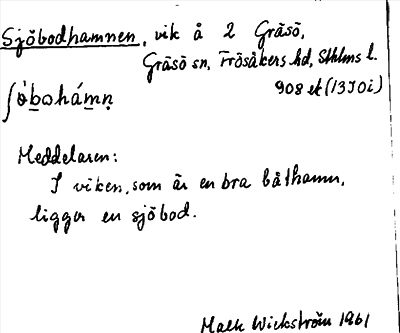 Sjöbodhamnen, vik å 2 Gräsö,
Gräsö sn, Frösåkers hd, Sthlms l.
908 ek (13J0i)
Meddelaren:
I viken, som är en bra båthamn,
ligger en sjöbod.
Wickström 1961